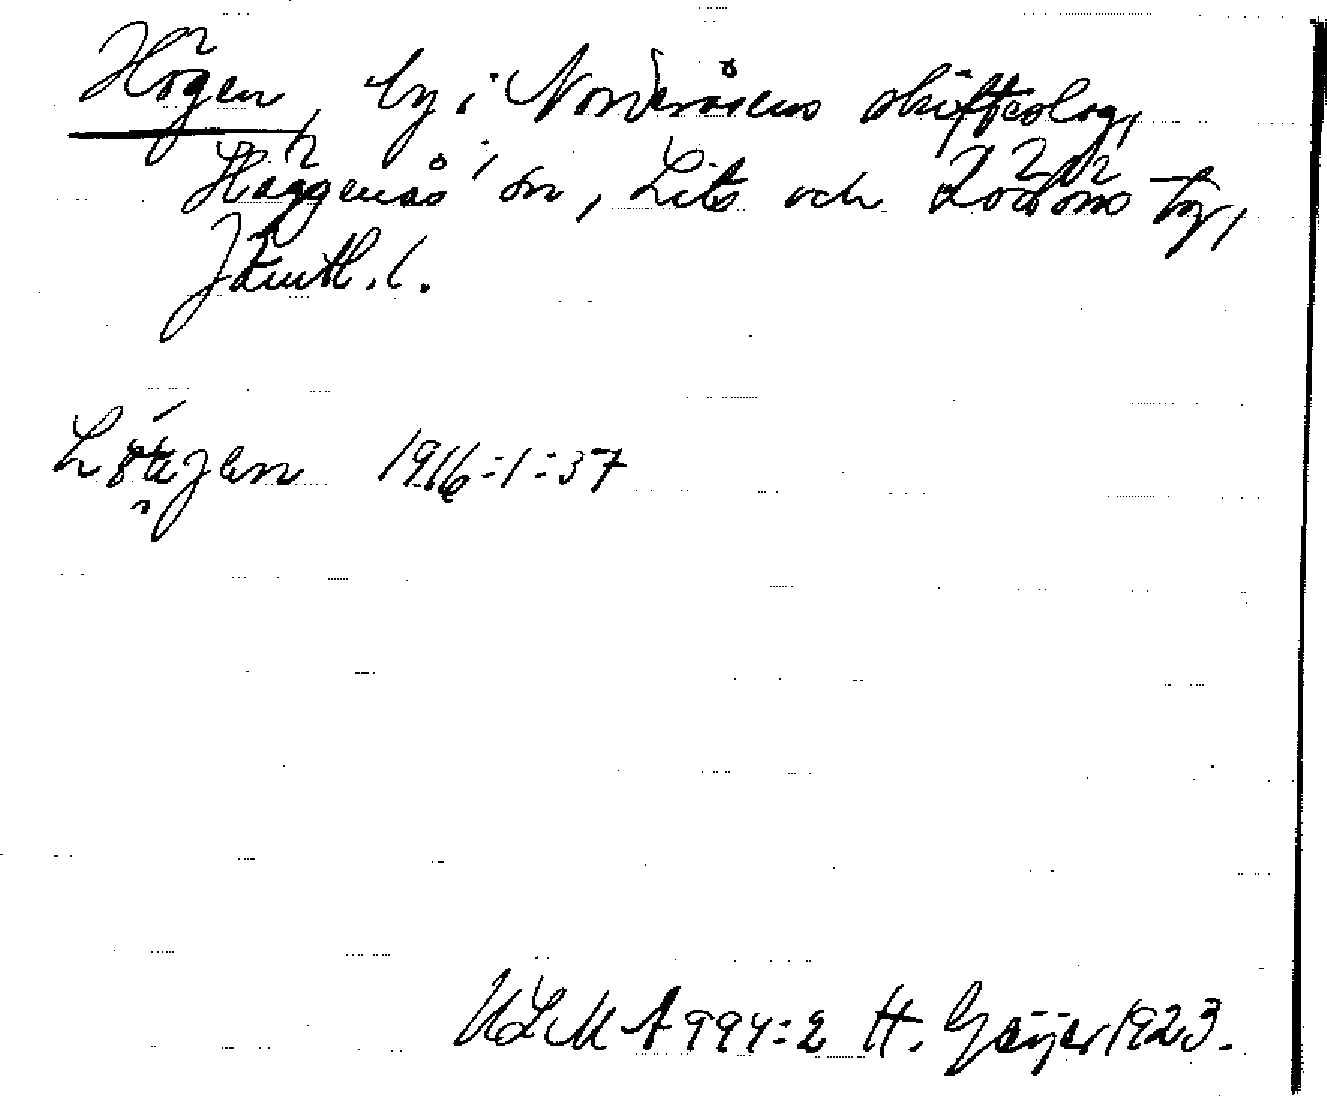 Högen, by i Norderåsens skifteslag,
Häggenås sn, Lits och Rödöns tg,
Jämtl. l.
Lötzen 1916:1:37
ULMA 994:2 H. Geijer 1923.